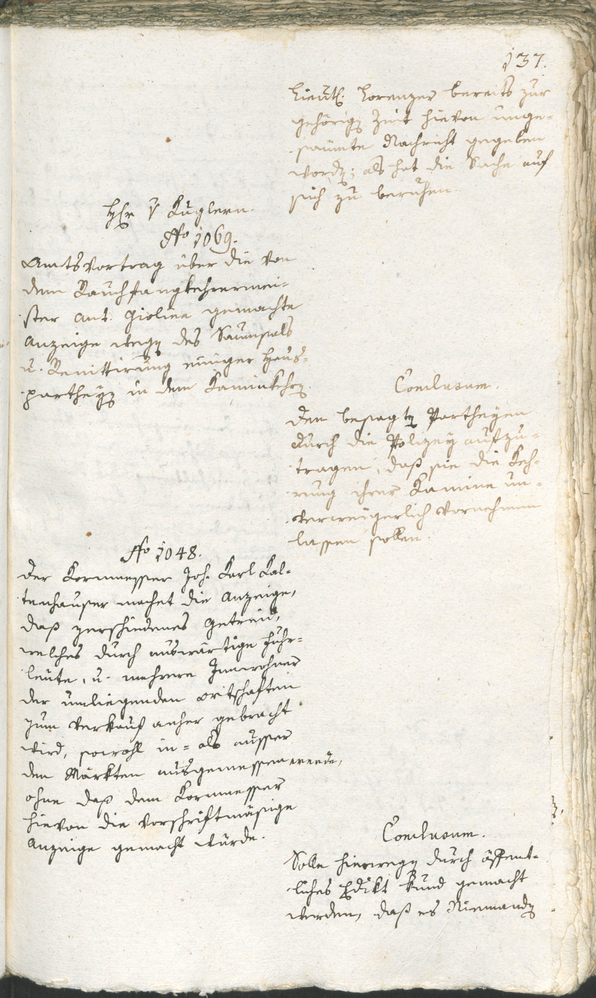 137.
Lieut. Lorenzer bereits zur
gehörig Zeit hievon unge-
säumte Nachricht gegeben
word; als hat die Sache auf
sich zu beruhen.
Hr. v Kuglern.
No 1069.
Amtsvortrag über die von
dem Rauchfangkehrermei-
ster Ant. Giolina gemachte
Anzeige weg des Saumsals
u. Renittirung einiger Haus-
partheyen in dem Kaminkehr
Conclusum.
Den besagten Partheyen
durch die Polizey aufzu-
tragen, daß sie die Keh-
rung ihrer Kamine un-
verweigerlich vornehmen
lassen sollen.
No 1048.
Der Kornmesser Joh. Karl Kal-
tenhauser machet die Anzeige,
daß verschiedenes Getreid,
welches durch auswärtige Fuhr-
leute, u. mehrere Innwohner
der umliegenden Ortschaften
zum Verkauf anher gebracht
wird, sowohl in- als ausser
den Märkten ausgemessen werde,
ohne daß dem Kornmesser
hievon die vorschriftmäsige
Anzeige gemacht würde.
Conclusum.
Solle hierwegen durch öffent-
liches Edikt kund gemacht
werden, daß es Niemanden